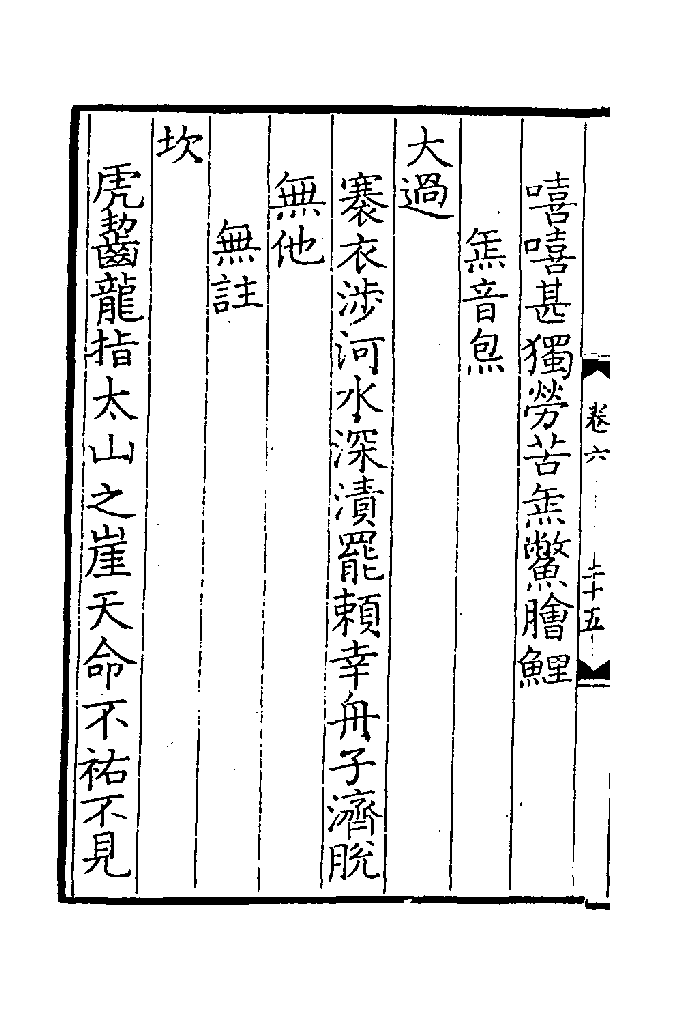 嘻嘻甚獨勞苦缹鱉膾鯉
缹音炰
大過
褰衣涉河水深漬罷頼幸舟子濟脫
無他
無註
坎
虎齧龍指太山之崖天命不祐不見
卷六
二十五